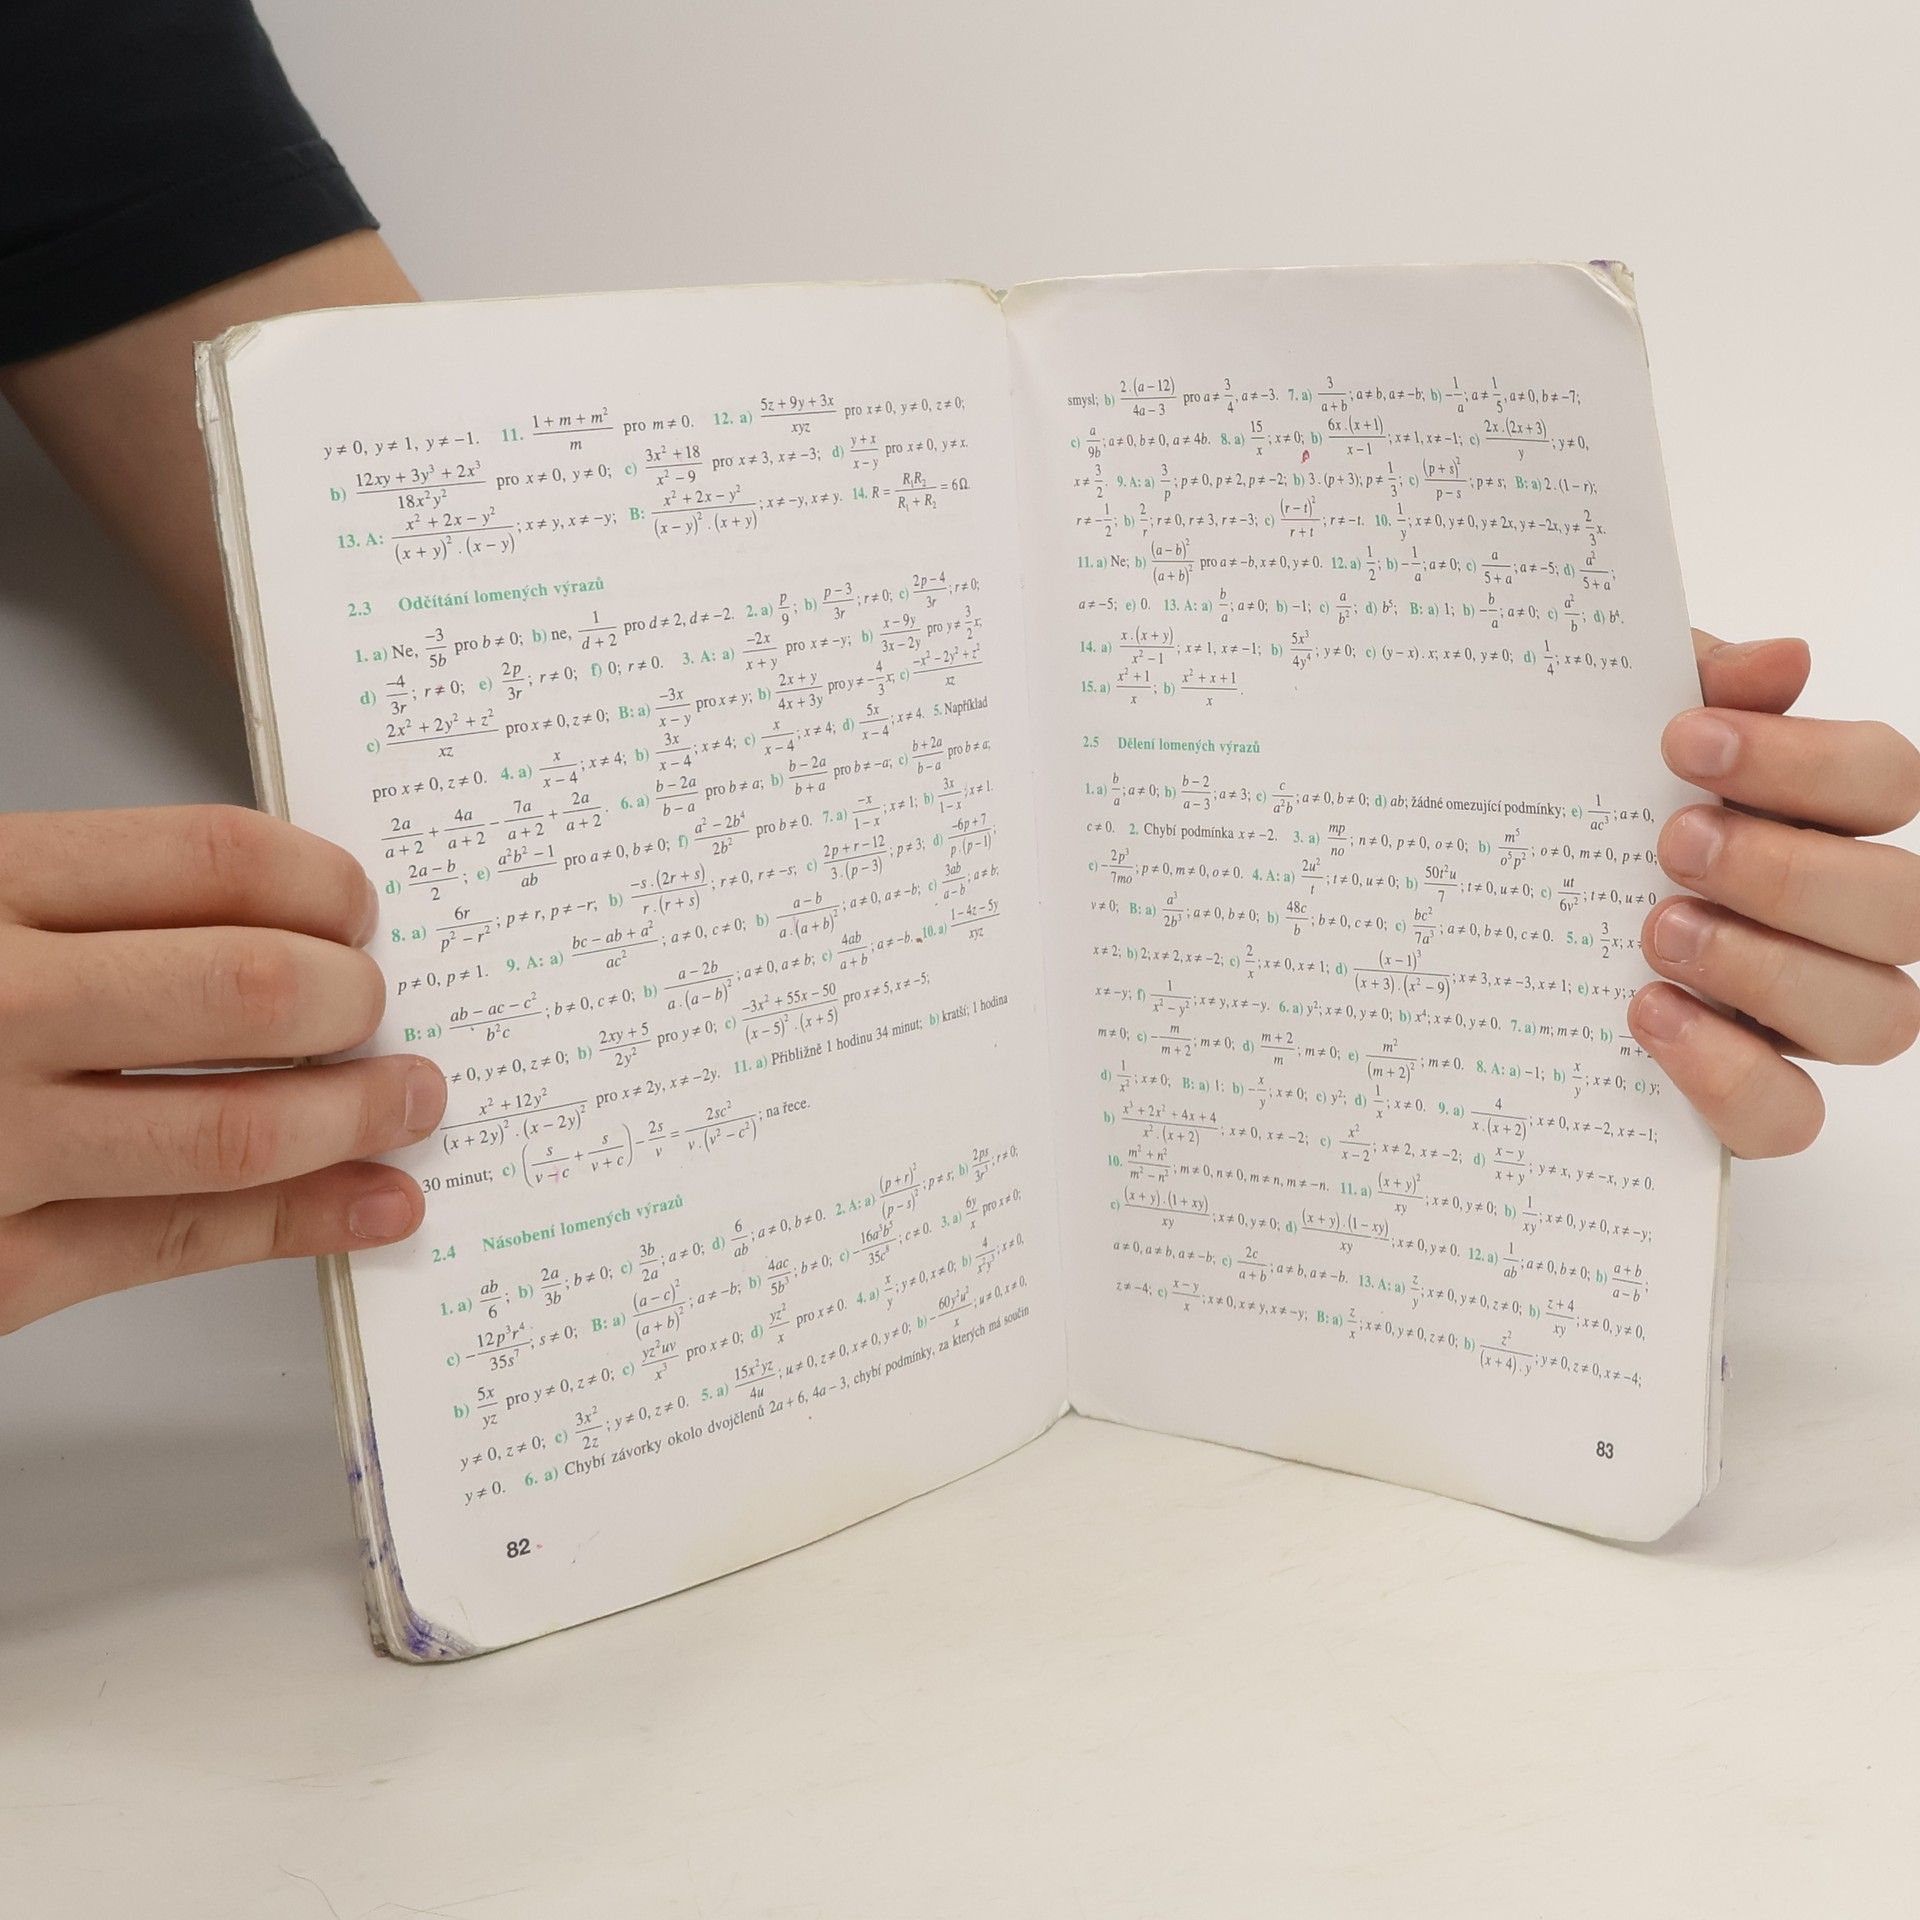 y ≠ 0, y ≠ 1, y ≠ −1. 11. (1 + m + m²)/m pro m ≠ 0. 12. a) (5z + 9y + 3x)/xyz pro x ≠ 0, y ≠ 0, z ≠ 0;
b) (12xy + 3y³ + 2x³)/(18x²y²) pro x ≠ 0, y ≠ 0; c) (3x² + 18)/(x² − 9) pro x ≠ 3, x ≠ −3; d) (y + x)/(x − y) pro x ≠ 0, y ≠ x.
13. A: (x² + 2x − y²)/((x + y)² . (x − y)); x ≠ y, x ≠ −y; B: (x² + 2x − y²)/((x − y)² . (x + y)); x ≠ −y, x ≠ y. 14. R = R₁R₂/(R₁ + R₂) = 6Ω.
2.3 Odčítání lomených výrazů
1. a) Ne, −3/5b pro b ≠ 0; b) ne, 1/(d + 2) pro d ≠ 2, d ≠ −2. 2. a) p/9; b) (p − 3)/3r; r ≠ 0; c) (2p − 4)/3r; r ≠ 0;
d) −4/3r; r ≠ 0; e) 2p/3r; r ≠ 0; f) 0; r ≠ 0. 3. A: a) −2x/(x + y) pro x ≠ −y; b) (x − 9y)/(3x − 2y) pro y ≠ 3/2 x;
c) (2x² + 2y² + z²)/xz pro x ≠ 0, z ≠ 0; B: a) −3x/(x − y) pro x ≠ y; b) (2x + y)/(4x + 3y) pro y ≠ −4/3 x; c) (−x² − 2y² + z²)/xz
pro x ≠ 0, z ≠ 0. 4. a) x/(x − 4); x ≠ 4; b) 3x/(x − 4); x ≠ 4; c) x/(x − 4); x ≠ 4; d) 5x/(x − 4); x ≠ 4. 5. Například
2a/(a + 2) + 4a/(a + 2) − 7a/(a + 2) + 2a/(a + 2). 6. a) (b − 2a)/(b − a) pro b ≠ a; b) (b − 2a)/(b + a) pro b ≠ −a; c) (b + 2a)/(b − a) pro b ≠ a;
d) (2a − b)/2; e) (a²b² − 1)/ab pro a ≠ 0, b ≠ 0; f) (a² − 2b⁴)/2b² pro b ≠ 0. 7. a) −x/(1 − x); x ≠ 1; b) 3x/(1 − x); x ≠ 1.
8. a) 6r/(p² − r²); p ≠ r, p ≠ −r; b) −s . (2r + s)/(r . (r + s)); r ≠ 0, r ≠ −s; c) (2p + r − 12)/(3 . (p − 3)); p ≠ 3; d) (−6p + 7)/(p . (p − 1));
p ≠ 0, p ≠ 1. 9. A: a) (bc − ab + a²)/ac²; a ≠ 0, c ≠ 0; b) (a − b)/(a . (a + b)²); a ≠ 0, a ≠ −b; c) 3ab/(a − b); a ≠ b;
B: a) (ab − ac − c²)/b²c; b ≠ 0, c ≠ 0; b) (a − 2b)/(a . (a − b)²); a ≠ 0, a ≠ b; c) 4ab/(a + b); a ≠ −b. 10. a) (1 − 4z − 5y)/xyz
≠ 0, y ≠ 0, z ≠ 0; b) (2xy + 5)/2y² pro y ≠ 0; c) (−3x² + 55x − 50)/((x − 5)² . (x + 5)) pro x ≠ 5, x ≠ −5;
(x² + 12y²)/((x + 2y)² . (x − 2y)²) pro x ≠ 2y, x ≠ −2y. 11. a) Přibližně 1 hodinu 34 minut; b) kratší; 1 hodina
30 minut; c) (s/(v − c) + s/(v + c)) − 2s/v = 2sc²/(v . (v² − c²)); na řece.
2.4 Násobení lomených výrazů
1. a) ab/6; b) 2a/3b; b ≠ 0; c) 3b/2a; a ≠ 0; d) 6/ab; a ≠ 0, b ≠ 0. 2. A: a) (p + r)²/(p − s)²; p ≠ s; b) 2ps/3r³; r ≠ 0;
c) −12p³r⁴/35s⁷; s ≠ 0; B: a) (a − c)²/(a + b)²; a ≠ −b; b) 4ac/5b³; b ≠ 0; c) −16a³b⁵/35c⁸; c ≠ 0. 3. a) 6y/x pro x ≠ 0;
b) 5x/yz pro y ≠ 0, z ≠ 0; c) yz²uv/x³ pro x ≠ 0; d) yz²/x pro x ≠ 0. 4. a) x/y; y ≠ 0, x ≠ 0; b) 4/x²y³; x ≠ 0,
y ≠ 0, z ≠ 0; c) 3x²/2z; y ≠ 0, z ≠ 0. 5. a) 15x²yz/4u; u ≠ 0, z ≠ 0, x ≠ 0, y ≠ 0; b) −60y²u²/x; u ≠ 0, x ≠ 0,
y ≠ 0. 6. a) Chybí závorky okolo dvojčlenů 2a + 6, 4a − 3, chybí podmínky, za kterých má součin
82
smysl; b) 2 . (a − 12)/(4a − 3) pro a ≠ 3/4, a ≠ −3. 7. a) 3/(a + b); a ≠ b, a ≠ −b; b) −1/a; a ≠ 1/5, a ≠ 0, b ≠ −7;
c) a/9b; a ≠ 0, b ≠ 0, a ≠ 4b. 8. a) 15/x; x ≠ 0; b) 6x . (x + 1)/(x − 1); x ≠ 1, x ≠ −1; c) 2x . (2x + 3)/y; y ≠ 0,
x ≠ 3/2. 9. A: a) 3/p; p ≠ 0, p ≠ 2, p ≠ −2; b) 3 . (p + 3); p ≠ 1/3; c) (p + s)²/(p − s); p ≠ s; B: a) 2 . (1 − r);
r ≠ −1/2; b) 2/r; r ≠ 0, r ≠ 3, r ≠ −3; c) (r − t)²/(r + t); r ≠ −t. 10. 1/y; x ≠ 0, y ≠ 0, y ≠ 2x, y ≠ −2x, y ≠ 2/3 x.
11. a) Ne; b) (a − b)²/(a + b)² pro a ≠ −b, x ≠ 0, y ≠ 0. 12. a) 1/2; b) −1/a; a ≠ 0; c) a/(5 + a); a ≠ −5; d) a²/(5 + a);
a ≠ −5; e) 0. 13. A: a) b/a; a ≠ 0; b) −1; c) a/b²; d) b⁵; B: a) 1; b) −b/a; a ≠ 0; c) a²/b; d) b⁴.
14. a) x . (x + y)/(x² − 1); x ≠ 1, x ≠ −1; b) 5x³/4y⁴; y ≠ 0; c) (y − x) . x; x ≠ 0, y ≠ 0; d) 1/4; x ≠ 0, y ≠ 0.
15. a) (x² + 1)/x; b) (x² + x + 1)/x.
2.5 Dělení lomených výrazů
1. a) b/a; a ≠ 0; b) (b − 2)/(a − 3); a ≠ 3; c) c/a²b; a ≠ 0, b ≠ 0; d) ab; žádné omezující podmínky; e) 1/ac³; a ≠ 0,
c ≠ 0. 2. Chybí podmínka x ≠ −2. 3. a) mp/no; n ≠ 0, p ≠ 0, o ≠ 0; b) m⁵/o⁵p²; o ≠ 0, m ≠ 0, p ≠ 0;
c) −2p³/7mo; p ≠ 0, m ≠ 0, o ≠ 0. 4. A: a) 2u²/t; t ≠ 0, u ≠ 0; b) 50t²u/7; t ≠ 0, u ≠ 0; c) ut/6v²; t ≠ 0, u ≠ 0
v ≠ 0; B: a) a³/2b³; a ≠ 0, b ≠ 0; b) 48c/b; b ≠ 0, c ≠ 0; c) bc²/7a³; a ≠ 0, b ≠ 0, c ≠ 0. 5. a) 3/2 x; x
x ≠ 2; b) 2; x ≠ 2, x ≠ −2; c) 2/x; x ≠ 0, x ≠ 1; d) (x − 1)³/((x + 3) . (x² − 9)); x ≠ 3, x ≠ −3, x ≠ 1; e) x + y; x
x ≠ −y; f) 1/(x² − y²); x ≠ y, x ≠ −y. 6. a) y²; x ≠ 0, y ≠ 0; b) x⁴; x ≠ 0, y ≠ 0. 7. a) m; m ≠ 0; b)
m ≠ 0; c) −m/(m + 2); m ≠ 0; d) (m + 2)/m; m ≠ 0; e) m²/(m + 2)²; m ≠ 0. 8. A: a) −1; b) x/y; x ≠ 0; c) y;
d) 1/x²; x ≠ 0; B: a) 1; b) −x/y; x ≠ 0; c) y²; d) 1/x; x ≠ 0. 9. a) 4/(x . (x + 2)); x ≠ 0, x ≠ −2, x ≠ −1;
b) (x³ + 2x² + 4x + 4)/(x² . (x + 2)); x ≠ 0, x ≠ −2; c) x²/(x − 2); x ≠ 2, x ≠ −2; d) (x − y)/(x + y); y ≠ x, y ≠ −x, y ≠ 0.
10. (m² + n²)/(m² − n²); m ≠ 0, n ≠ 0, m ≠ n, m ≠ −n. 11. a) (x + y)²/xy; x ≠ 0, y ≠ 0; b) 1/xy; x ≠ 0, y ≠ 0, x ≠ −y;
c) (x + y) . (1 + xy)/xy; x ≠ 0, y ≠ 0; d) (x + y) . (1 − xy)/xy; x ≠ 0, y ≠ 0. 12. a) 1/ab; a ≠ 0, b ≠ 0; b) (a + b)/(a − b);
a ≠ 0, a ≠ b, a ≠ −b; c) 2c/(a + b); a ≠ b, a ≠ −b. 13. A: a) z/y; x ≠ 0, y ≠ 0, z ≠ 0; b) (z + 4)/xy; x ≠ 0, y ≠ 0,
z ≠ −4; c) (x − y)/x; x ≠ 0, x ≠ y, x ≠ −y; B: a) z/x; x ≠ 0, y ≠ 0, z ≠ 0; b) z²/((x + 4) . y); y ≠ 0, z ≠ 0, x ≠ −4;
83